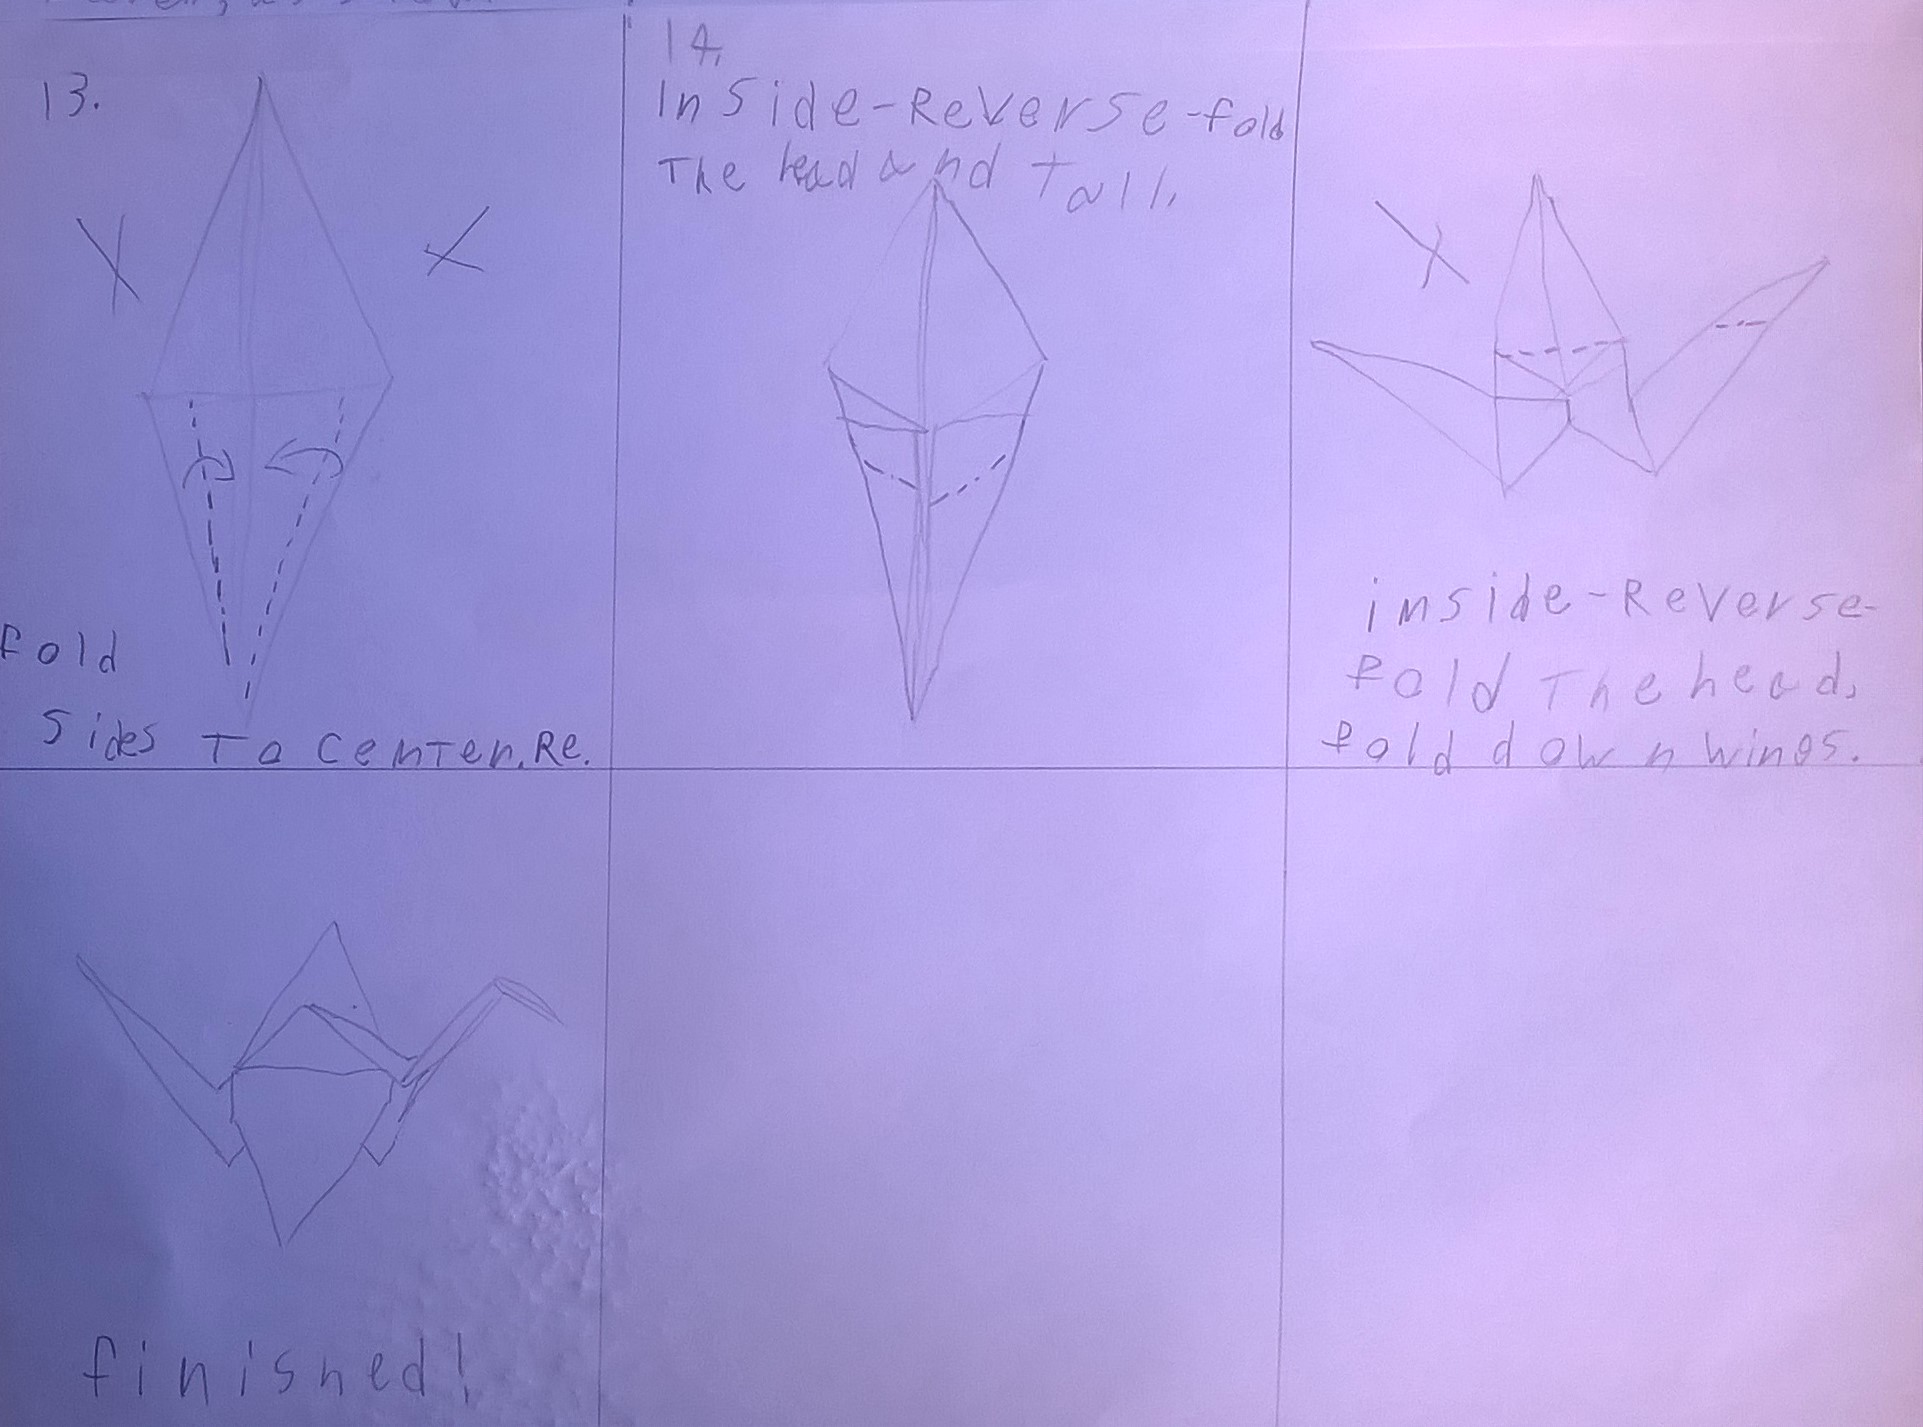 13.
fold
sides To center. Re.
14.
Inside-Reverse-fold
The head and Tail.
inside-Reverse-
fold The head,
fold down wings.
finished!